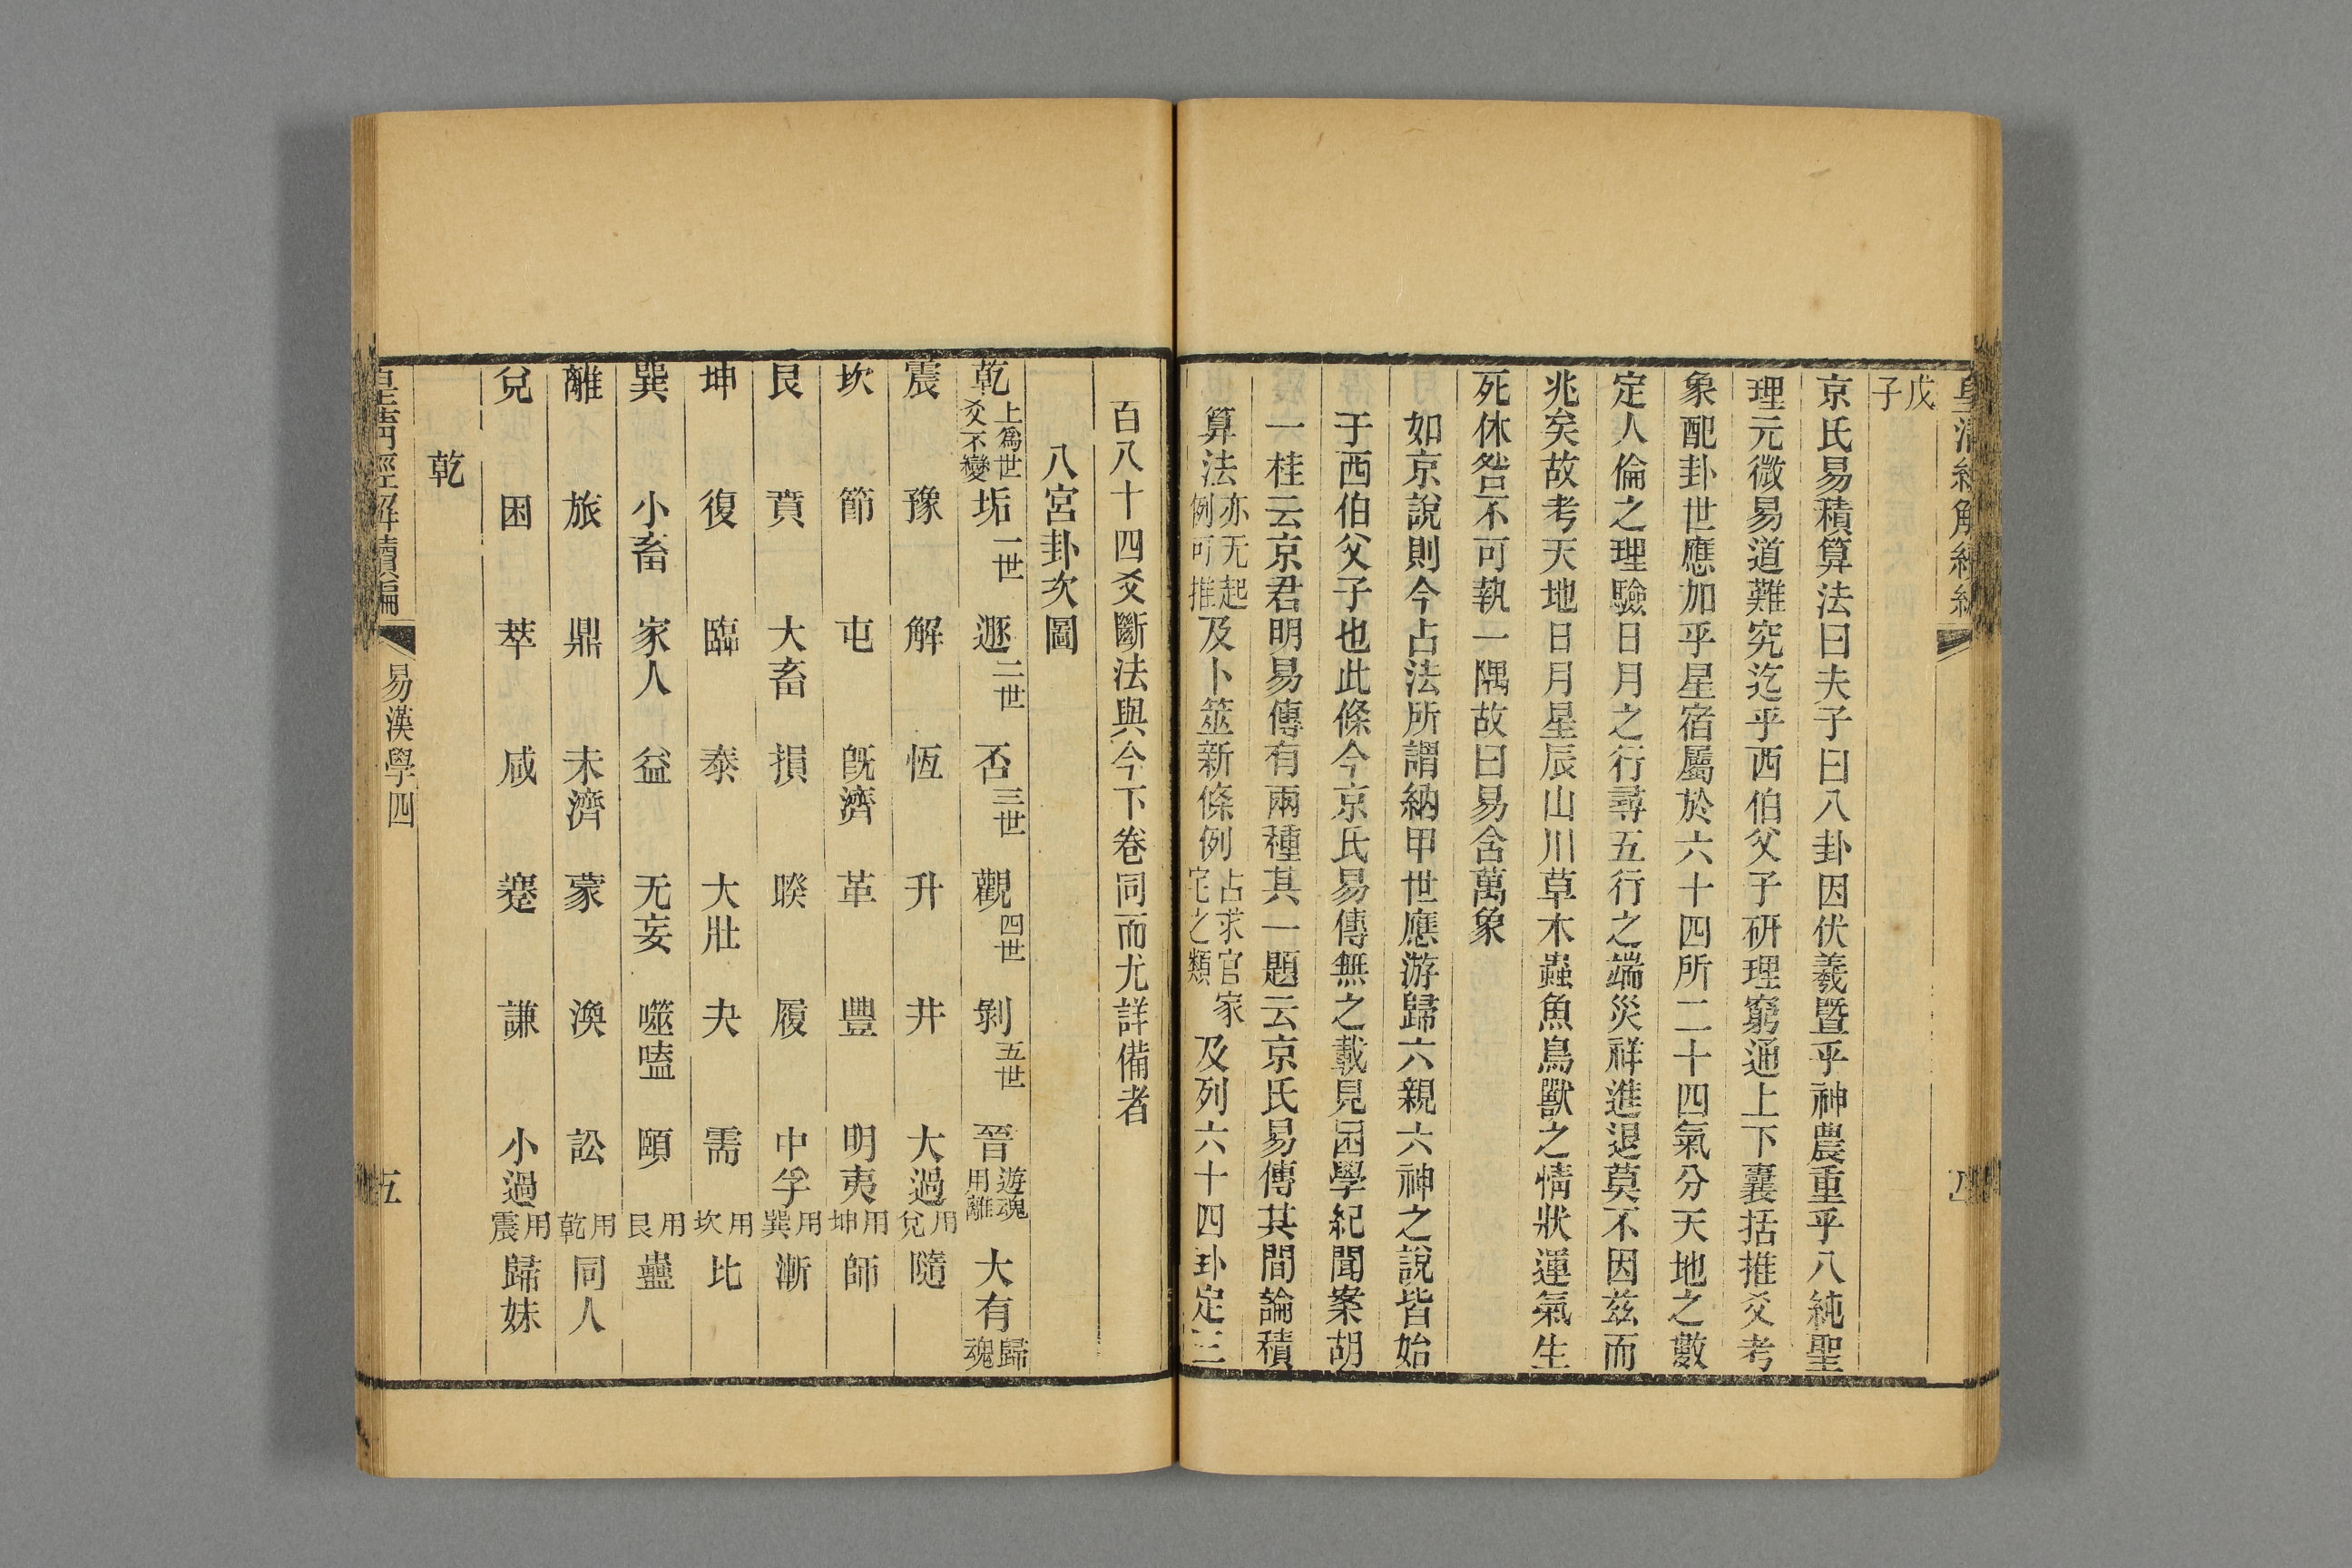 皇清經解續編
戊子
京氏易積算法曰夫子曰八卦因伏羲暨乎神農重乎八純聖
理元微易道難究迄乎西伯父子研理窮通上下囊括推爻考
象配卦世應加乎星宿屬於六十四所二十四氣分天地之數
定人倫之理驗日月之行尋五行之端災祥進退莫不因茲而
兆矣故考天地日月星辰山川草木蟲魚鳥獸之情狀運氣生
死休咎不可執一隅故曰易含萬象
如京說則今占法所謂納甲世應游歸六親六神之說皆始
于西伯父子也此條今京氏易傳無之載見困學紀聞案胡
一桂云京君明易傳有兩種其一題云京氏易傳其間論積
算法亦无起例可推及卜筮新條例占求官家宅之類及列六十四卦定三
百八十四爻斷法與今下卷同而尤詳備者
八宮卦次圖
乾上爲世爻不變 垢一世 遯二世 否三世 觀四世 剝五世 晉遊魂用離 大有歸魂
震 豫 解 恆 升 井 大過用兌 隨
坎 節 屯 旣濟 革 豐 明夷用坤 師
艮 賁 大畜 損 睽 履 中孚用巽 漸
坤 復 臨 泰 大壯 夬 需用坎 比
巽 小畜 家人 益 无妄 噬嗑 頤用艮 蠱
離 旅 鼎 未濟 蒙 渙 訟用乾 同人
兌 困 萃 咸 蹇 謙 小過用震 歸妹
乾
皇淸經解續編 易漢學四 五